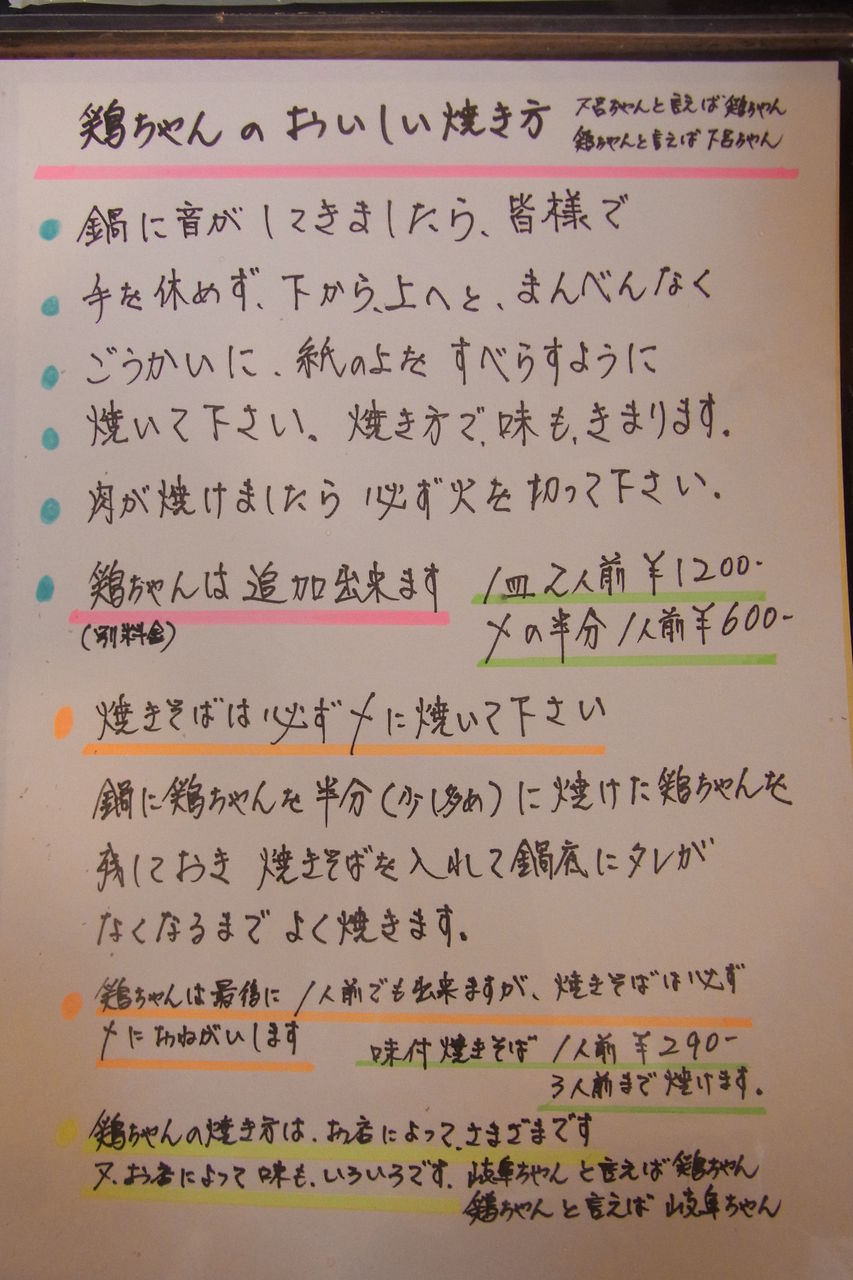 鶏ちゃんのおいしい焼き方
下呂ちゃんと言えば鶏ちゃん
鶏ちゃんと言えば下呂ちゃん
鍋に音がしてきましたら、皆様で
手を休めず、下から、上へと、まんべんなく
ごうかいに、紙の上を すべらすように
焼いて下さい。焼き方で、味も、きまります。
肉が焼けましたら 必ず火を切って下さい。
鶏ちゃんは追加出来ます
(別料金)
1皿 2人前 ¥1200-
〆の半分 1人前 ¥600-
焼きそばは必ず〆に焼いて下さい
鍋に鶏ちゃんを半分(少し多め)に焼けた鶏ちゃんを
残しておき 焼きそばを入れて鍋底にタレが
なくなるまで よく焼きます。
鶏ちゃんは最後に 1人前でも出来ますが、焼きそばは必ず
〆におねがいします
味付焼きそば 1人前 ¥290-
3人前まで焼けます。
鶏ちゃんの焼き方は、お店によって、さまざまです
又、お店によって味も、いろいろです。岐阜ちゃんと言えば鶏ちゃん
鶏ちゃんと言えば 岐阜ちゃん